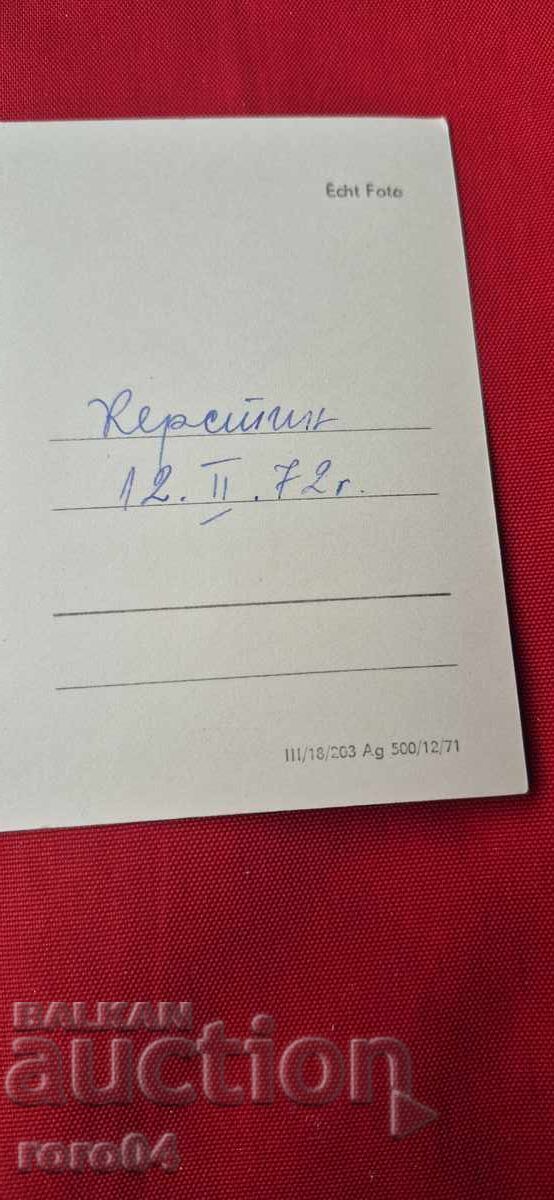 Echt Foto
Керстин
12. II. 72 г.
III/18/203 Ag 500/12/71
BALKAN
auction
roro04